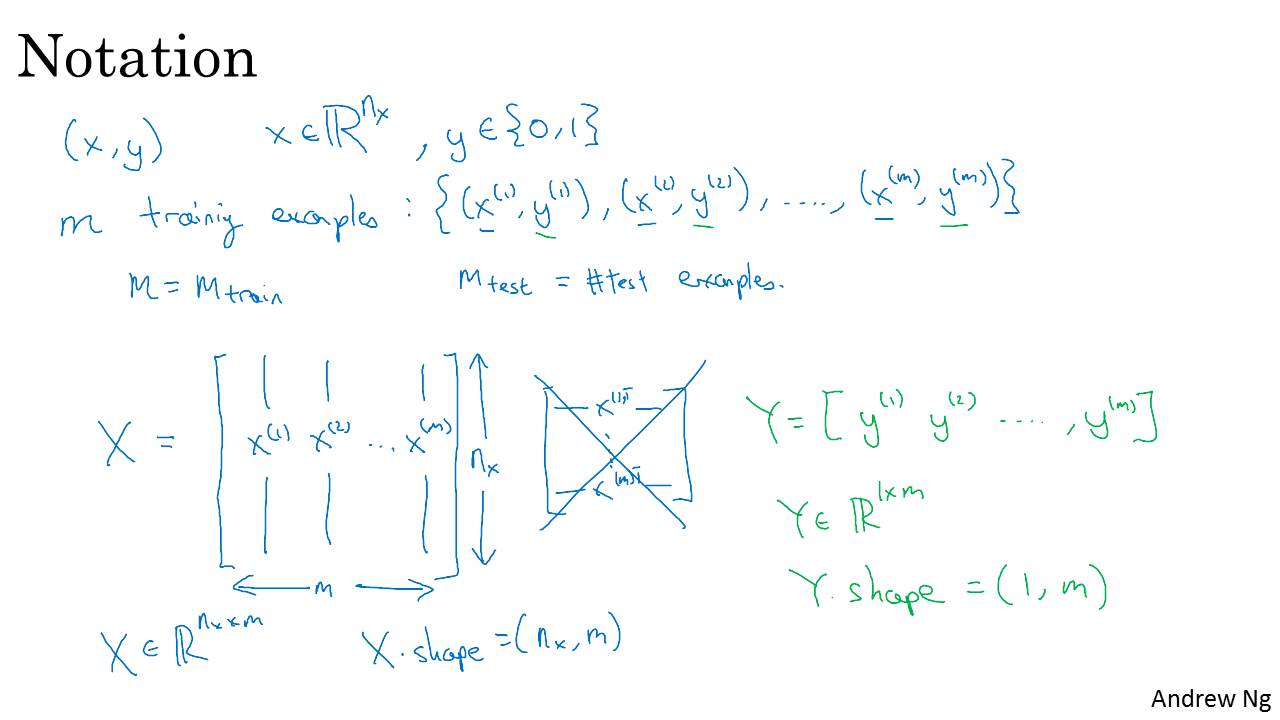 Notation
(x, y) x ∈ ℝ^{n_x}, y ∈ {0, 1}
m training examples : {(x^{(1)}, y^{(1)}), (x^{(2)}, y^{(2)}), ...., (x^{(m)}, y^{(m)})}
M = M_{train} M_{test} = #test examples.
X = [ x^{(1)} x^{(2)} ... x^{(m)} ] n_x
m
x^{(1)T}
x^{(m)T}
Y = [ y^{(1)} y^{(2)} ...., y^{(m)} ]
Y ∈ ℝ^{1×m}
Y.shape = (1, m)
X ∈ ℝ^{n_x × m} X.shape = (n_x, m)
Andrew Ng